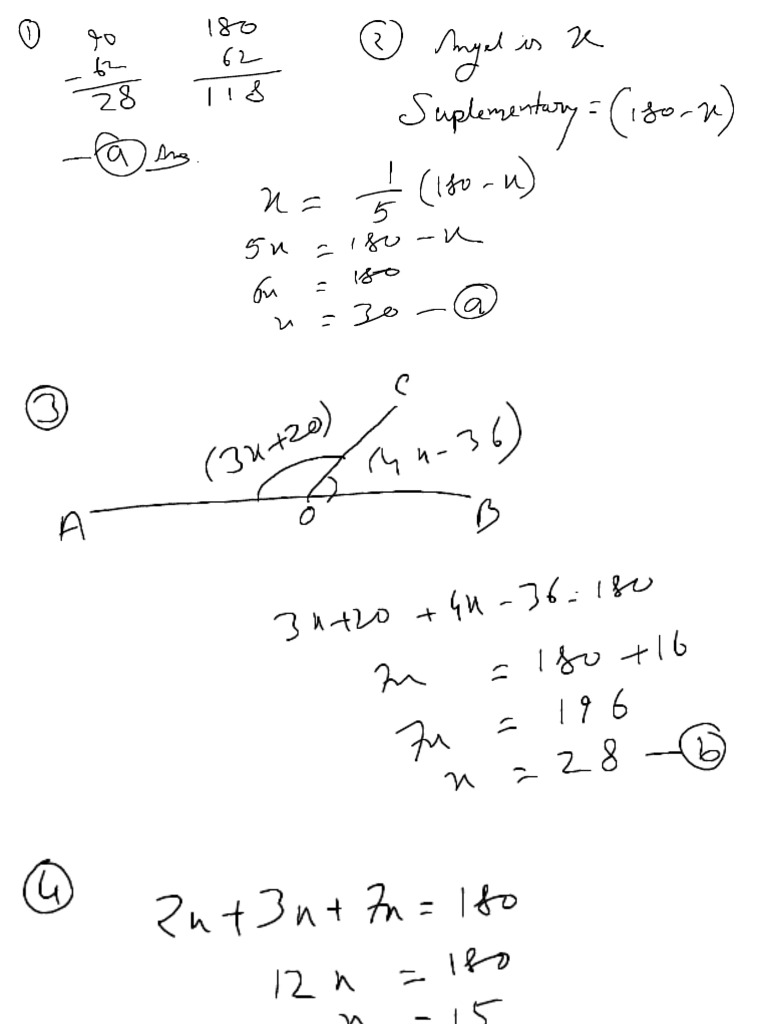 ① 90
- 62
28
180
62
118
- ⓐ Ans.
② Angel is x
Suplementary = (180-x)
x = 1/5 (180-x)
5x = 180-x
6x = 180
x = 30 - ⓐ
③
C
(3x+20)
(4x-36)
A
O
B
3x+20+4x-36=180
7x = 180+16
7x = 196
x = 28 - ⓑ
④ 2x+3x+7x=180
12x = 180
x = 15